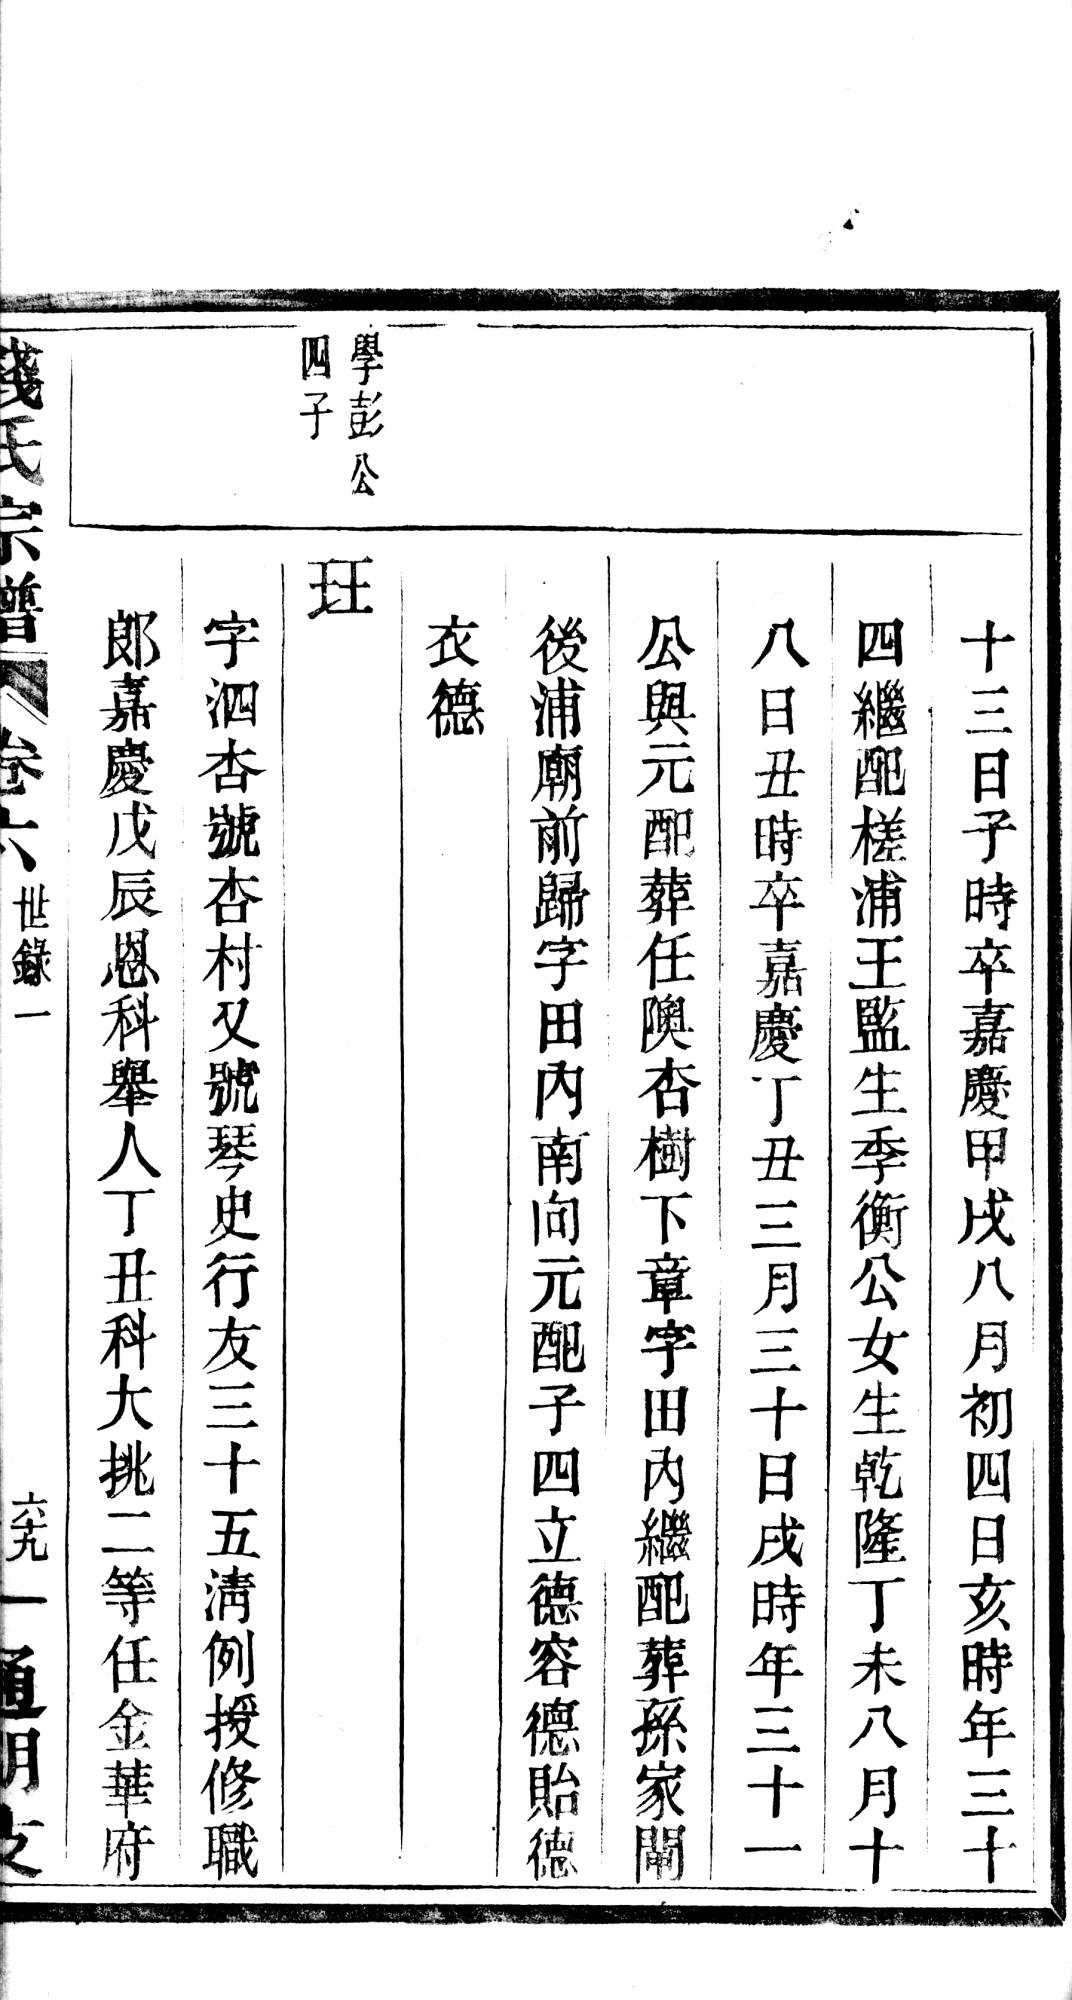 十三日子時卒嘉慶甲戌八月初四日亥時年三十
四繼配槎浦王監生季衡公女生乾隆丁未八月十
八日丑時卒嘉慶丁丑三月三十日戌時年三十一
公與元配葬任隩杏樹下章字田內繼配葬孫家閘
後浦廟前歸字田內南向元配子四立德容德貽德
衣德
學彭公
四子
玨
字泗杏號杏村又號琴史行友三十五淸例授修職
郎嘉慶戊辰恩科舉人丁丑科大挑二等任金華府
錢氏宗譜 卷六 世錄一 六十九 通明支